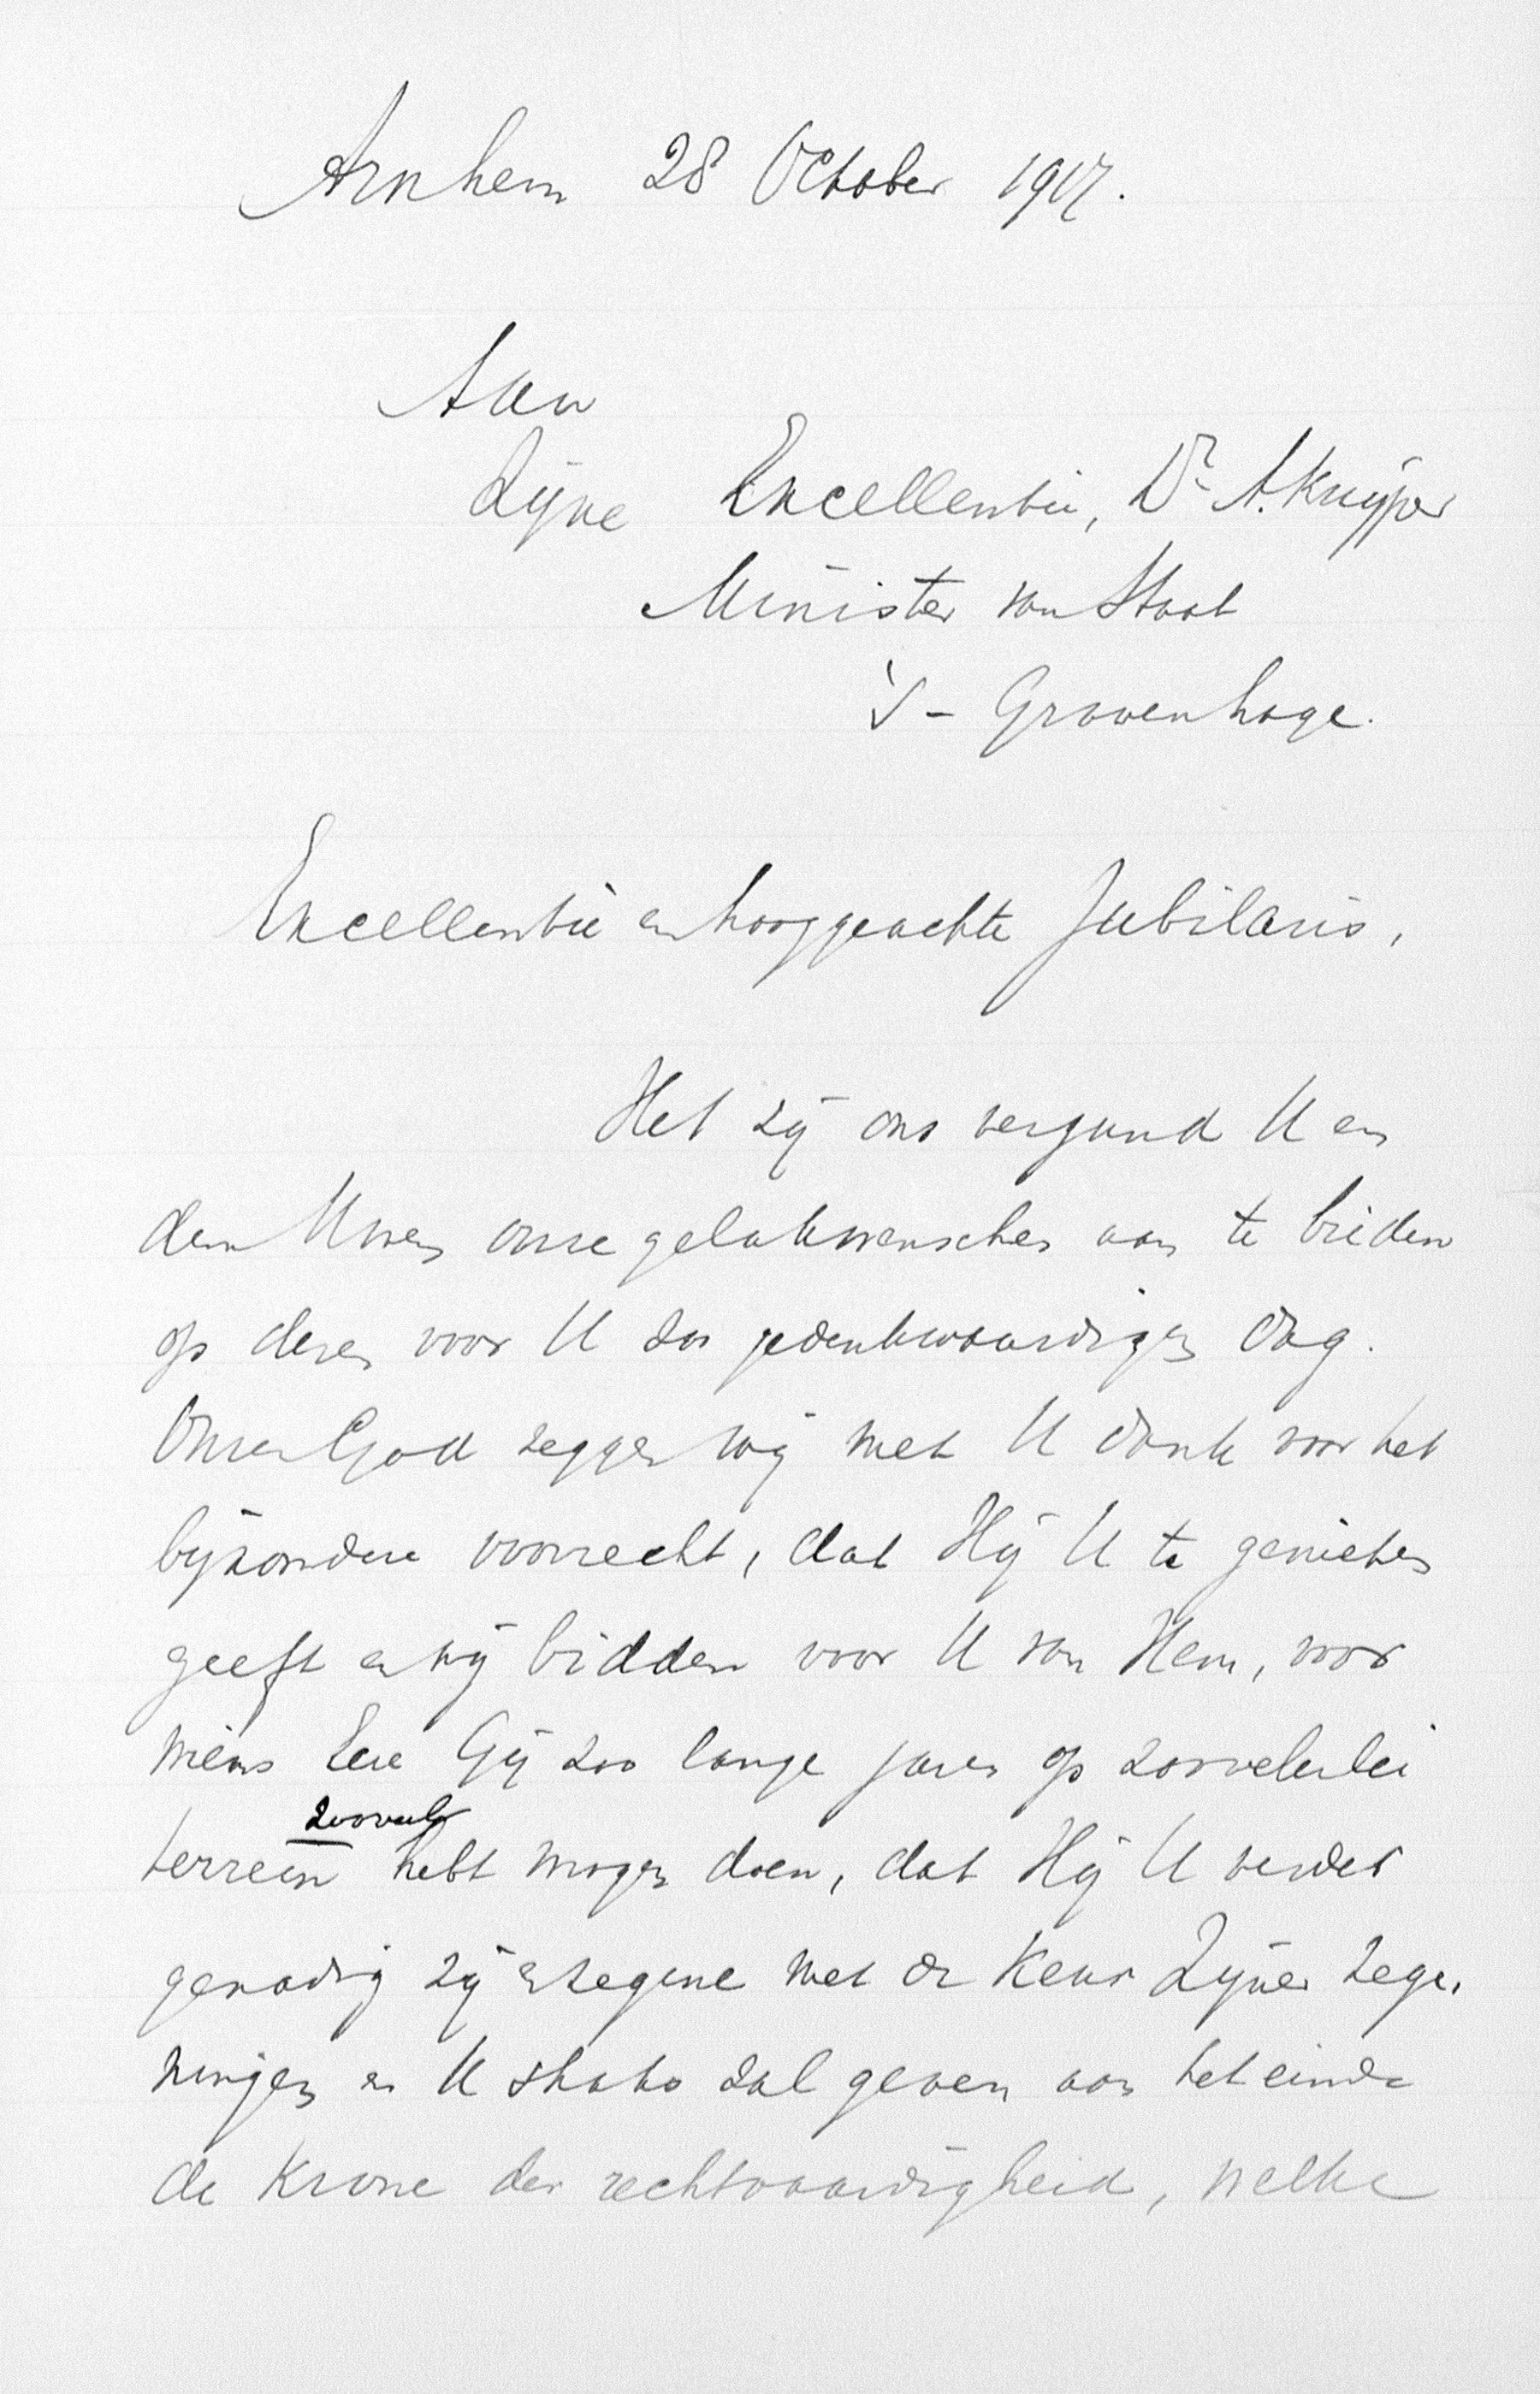 Arnhem 28 October 1917.
Aan
Zijne Excellentie, Dr A. Kuijper
Minister van Staat
's-Gravenhage.
Excellentie en hooggeachte Jubilaris,
Het zij ons vergund U en
den Uwen onze gelukwenschen aan te bieden
op dezen voor U zoo gedenkwaardigen dag.
Onzen God zeggen wij met U dank voor het
bijzondere voorrecht, dat Hij U te genieten
geeft en wij bidden voor U van Hem, voor
wiens Eere Gij zoo lange jaren op zoovelerlei
zooveel
terrein hebt mogen doen, dat Hij U verder
genadig zij en zegene met de keur Zijner zege-
ningen en U straks zal geven aan het einde
de Krone der rechtvaardigheid, welke